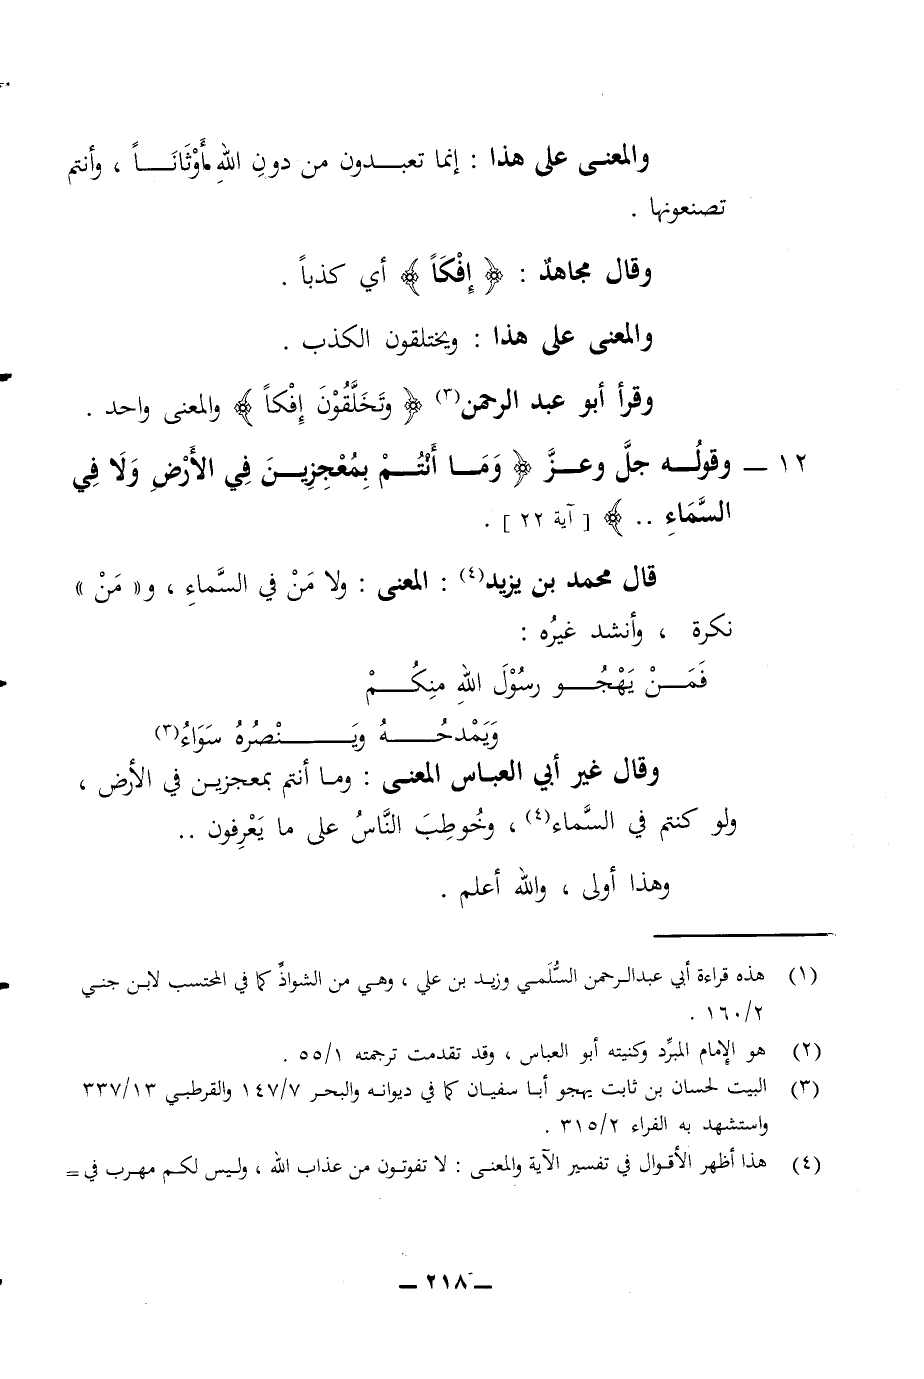 والمعنى على هذا : إنما تعبدون من دونِ اللهِ أَوْثَانَاً ، وأنتم
تصنعونها .
وقال مجاهدٌ : ﴿ إِفْكَاً ﴾ أي كذباً .
والمعنى على هذا : ويختلقون الكذب .
وقرأ أبو عبد الرحمن(٣) ﴿ وتَخَلَّقُوْنَ إِفْكاً ﴾ والمعنى واحد .
١٢ ــ وقولُه جلَّ وعزَّ ﴿ وَمَا أَنْتُمْ بِمُعْجِزِينَ فِي الأَرْضِ وَلَا فِي
السَّمَاءِ .. ﴾ [ آية ٢٢ ] .
قال محمد بن يزيد(٤) : المعنى : ولا مَنْ في السَّماءِ ، و« مَنْ »
نكرة ، وأنشد غيرُه :
فَمَنْ يَهْجُو رسُوْلَ اللهِ منِكُمْ
وَيَمْدحُهُ ويَنْصُرُهُ سَوَاءُ(٣)
وقال غير أبي العباس المعنى : وما أنتم بمعجزين في الأرض ،
ولو كنتم في السَّماء(٤) ، وخُوطِبَ النَّاسُ على ما يَعْرِفون ..
وهذا أولى ، والله أعلم .
(١) هذه قراءة أبي عبدالرحمن السُّلَمي وزيد بن علي ، وهي من الشواذِّ كما في المحتسب لابن جني
١٦٠/٢ .
(٢) هو الإمام المبرِّد وكنيته أبو العباس ، وقد تقدمت ترجمته ٥٥/١ .
(٣) البيت لحسان بن ثابت يهجو أبا سفيان كما في ديوانه والبحر ١٤٧/٧ والقرطبي ٣٣٧/١٣
واستشهد به الفراء ٣١٥/٢ .
(٤) هذا أظهر الأقوال في تفسير الآية والمعنى : لا تفوتون من عذاب الله ، وليس لكم مهرب في =
ــ ٢١٨ ــ